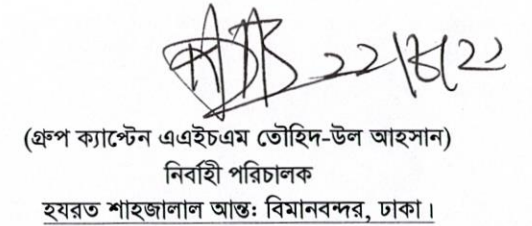 (গ্রুপ ক্যাপ্টেন এএইচএম তৌহিদ-উল আহসান)
নির্বাহী পরিচালক
হযরত শাহজালাল আন্তঃ বিমানবন্দর, ঢাকা।